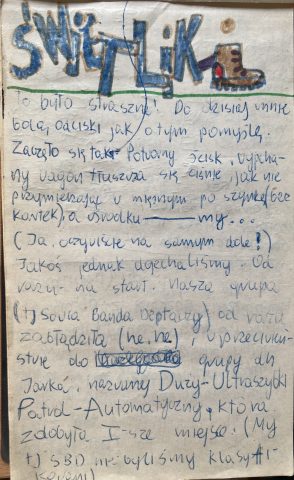 ŚWIETLIK
To było straszne! Do dzisiaj mnie
bolą odciski jak o tym pomyślę.
Zaczęło się tak: Potworny ścisk, wypcha-
ny wagon tłuszcza się ciśnie jak nie
przymierzając w mięsnym po szynkę (bez
kartek), a w środku my...
(Ja, oczywiście na samym dole!)
Jakoś jednak dojechaliśmy. Od
razu na start. Nasza grupa
(+) Sowia Banda Deptaczy) od razu
zabłądziła (he, he), w przeciwień-
stwie do grupy dh
Jarka, nazwanej Duży-Ultraszybki
Patrol-Automatyczny, która
zdobyła I-sze miejsce. (My
+) SBD nie byliśmy klasyfi-